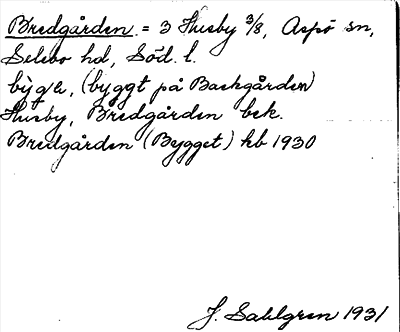 Bredgården = 3 Husby 3/8, Aspö sn,
Selebo hd, Söd. l.
(byggt på Backgården)
Husby, Bredgården bek.
Bredgården (Bygget) kb 1930
J. Sahlgren 1931